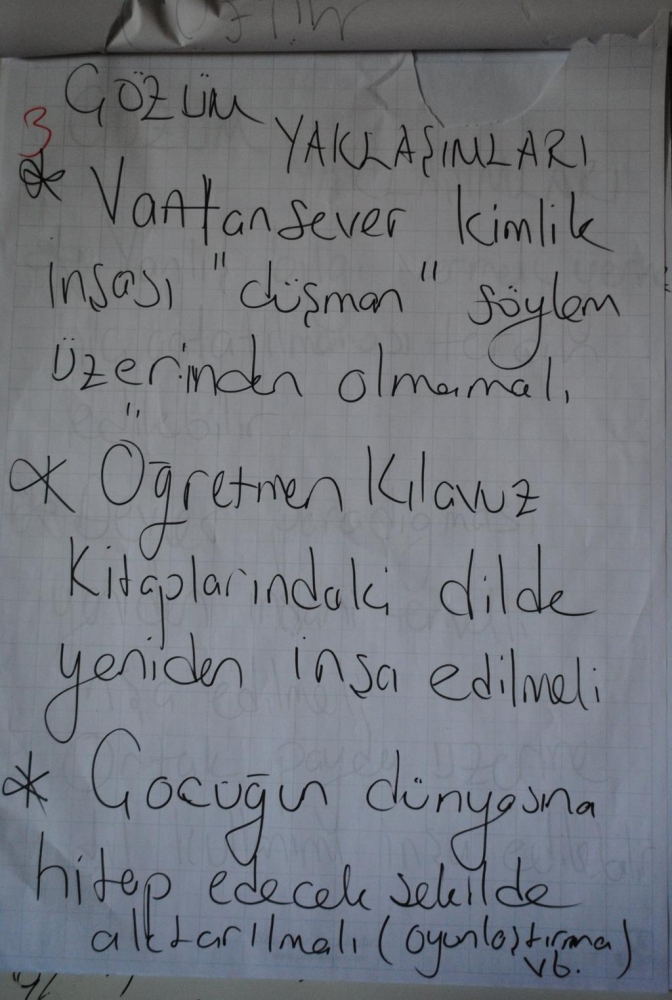 3
ÇÖZÜM
YAKLAŞIMLARI
* Vatansever kimlik
inşası "düşman" söylem
üzerinden olmamalı
* Öğretmen Kılavuz
Kitaplarındaki dilde
yeniden inşa edilmeli
* Çocuğun dünyasına
hitap edecek şekilde
aktarılmalı (oyunlaştırma)
vb.